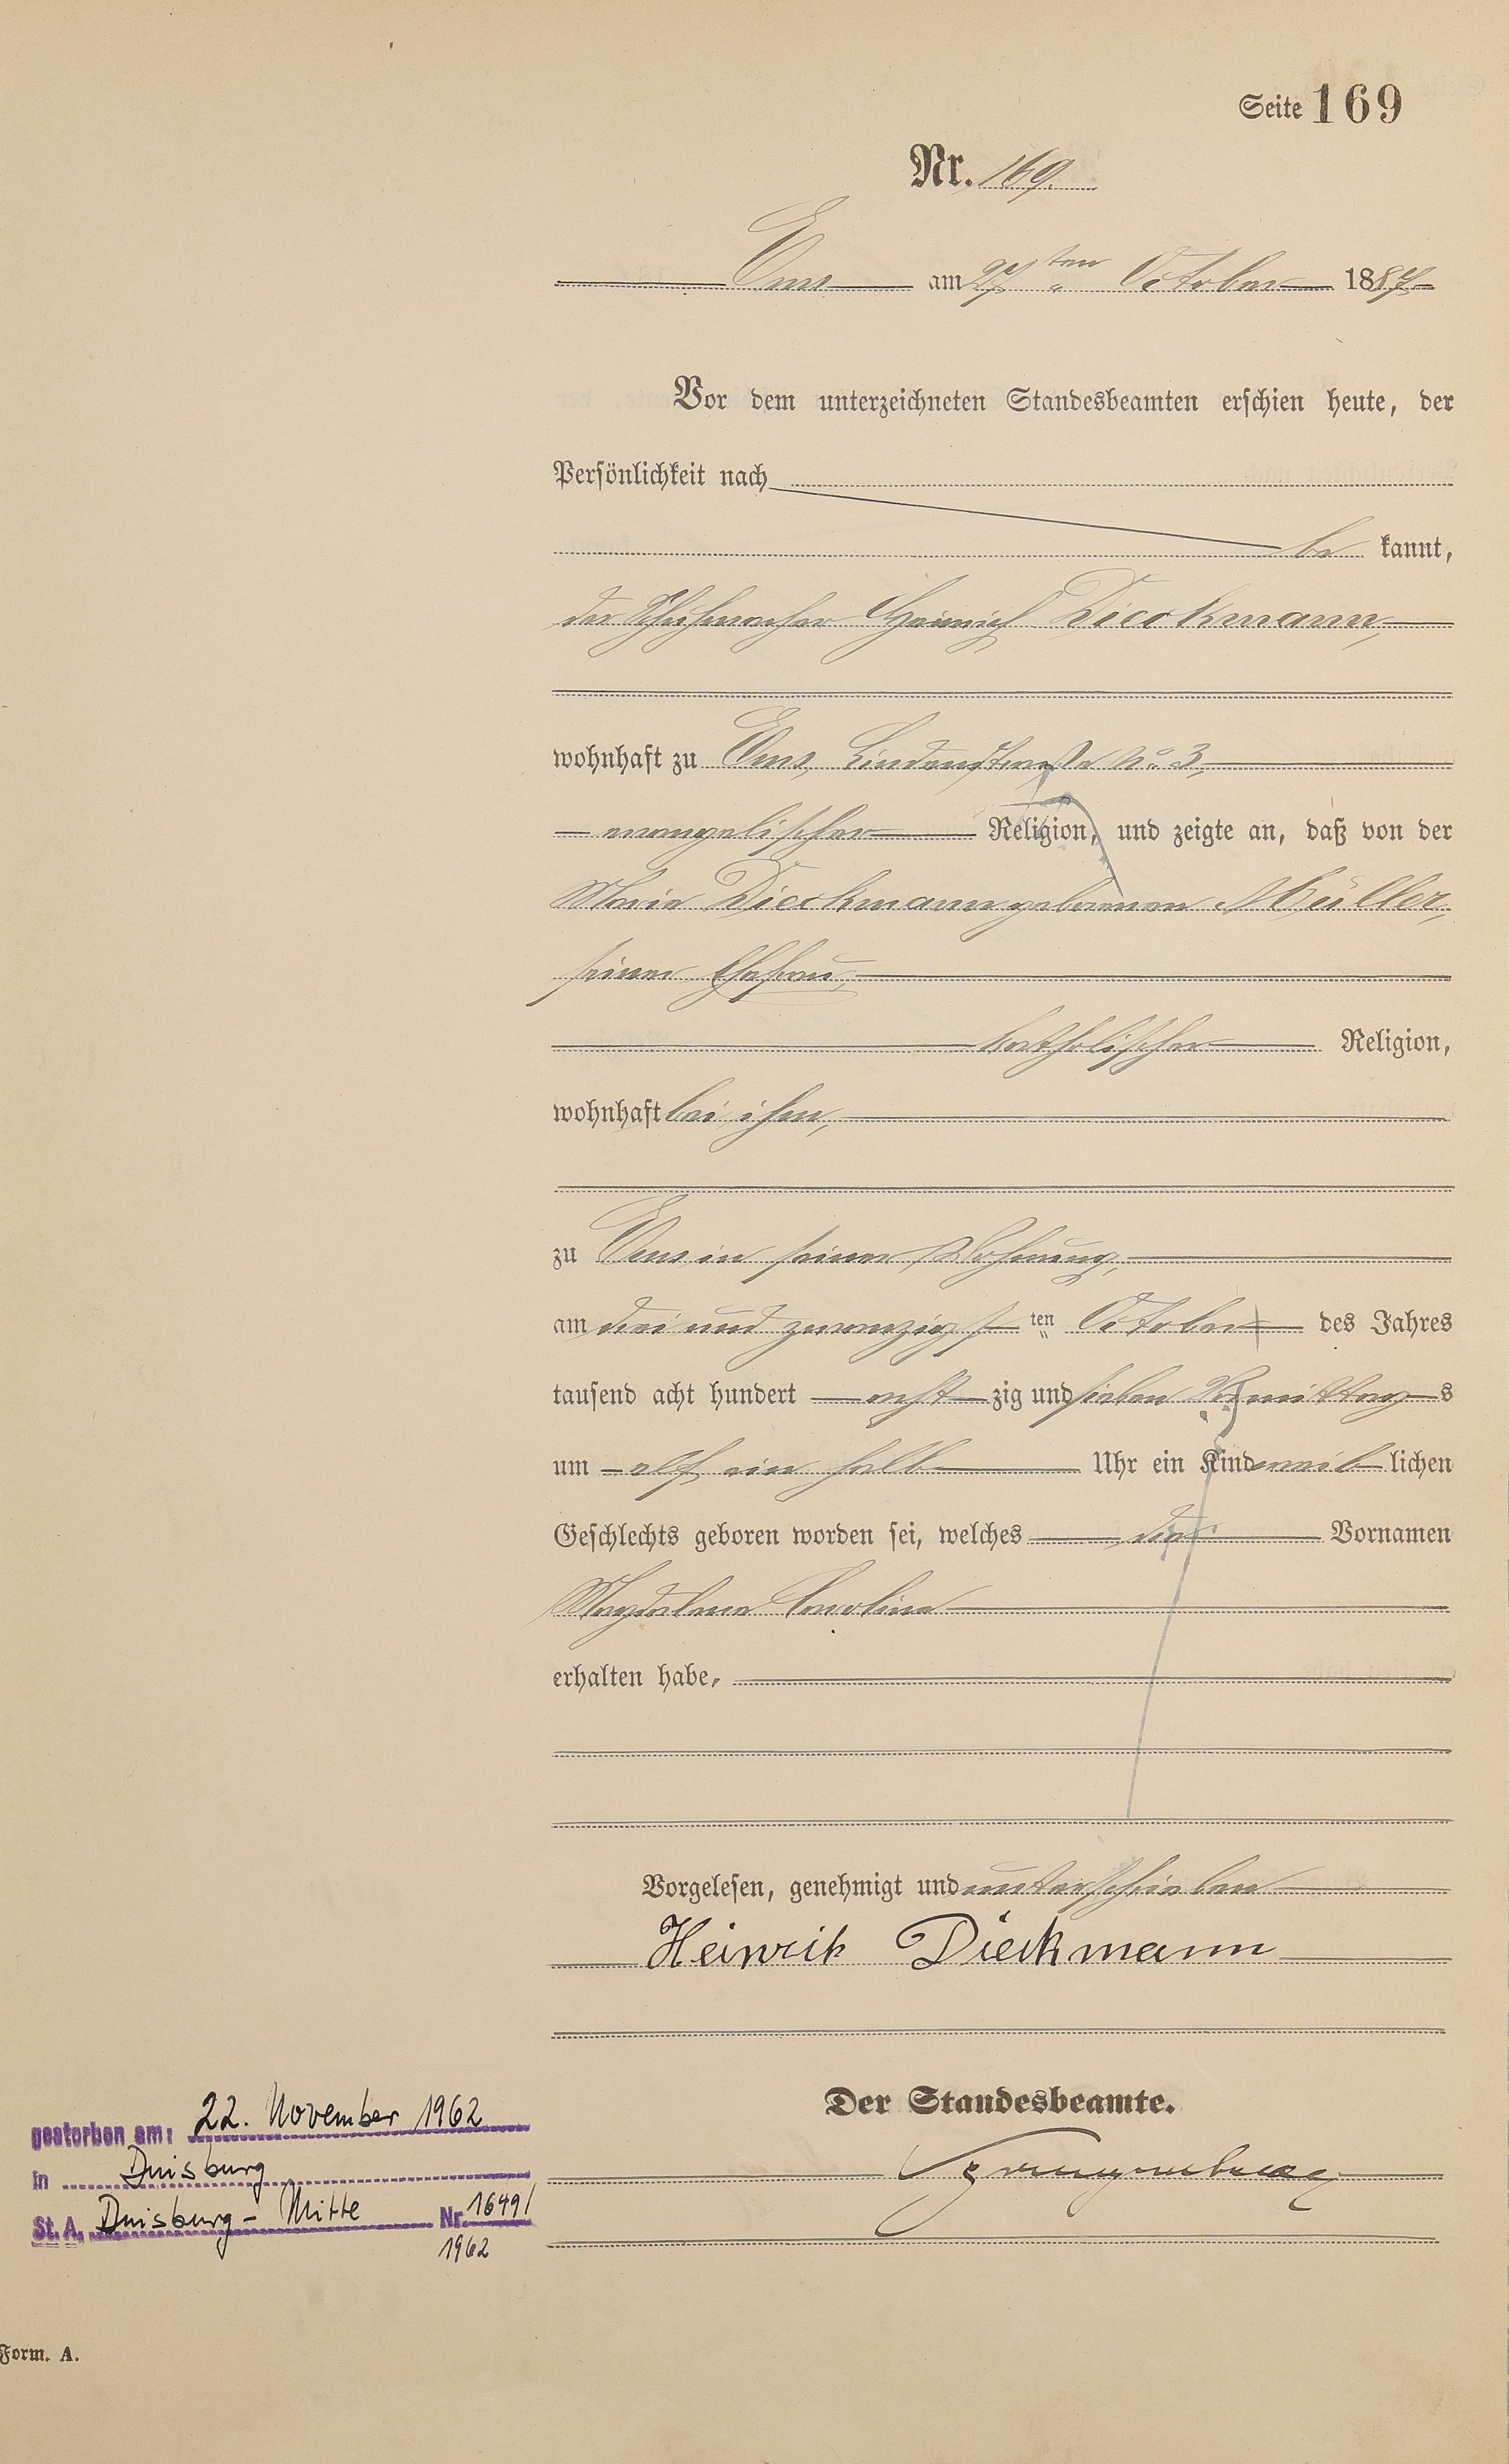 Seite 169
Nr. 169.
Ems am 27ten October 1887
Vor dem unterzeichneten Standesbeamten erschien heute, der
Persönlichkeit nach
be kannt,
der Schuhmacher Heinrich Dieckmann,
wohnhaft zu Ems, Lindenstraße No 3,
evangelischer Religion, und zeigte an, daß von der
Maria Dieckmann geborenen Müller,
seiner Ehefrau,
katholischer Religion,
wohnhaft bei ihm,
zu Ems in seiner Wohnung,
am drei und zwanzigsten October des Jahres
tausend acht hundert acht zig und sieben Vormittags
um elf ein halb Uhr ein Kind weiblichen
Geschlechts geboren worden sei, welches die Vornamen
Magdalena Carolina
erhalten habe.
Vorgelesen, genehmigt und unterschrieben
Heinrich Dieckmann
Der Standesbeamte.
gestorben am: 22. November 1962
in Duisburg
St. A. Duisburg-Mitte Nr. 1649/
1962
Form. A.